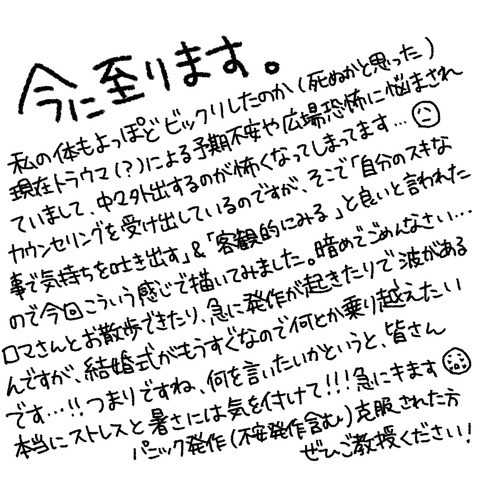 今に至ります。
私の体もよっぽどビックリしたのか(死ぬかと思った)
現在トラウマ(?)による予期不安や広場恐怖に悩まされ
ていまして、中々外出するのが怖くなってしまってます…
カウンセリングを受け出しているのですが、そこで「自分のスキな
事で気持ちを吐き出す」&「客観的にみる」と良いと言われた
ので今回こういう感じで描いてみました。暗めでごめんなさい…
ロマさんとお散歩できたり、急に発作が起きたりで波がある
んですが、結婚式がもうすぐなので何とか乗り越えたい
です…!!つまりですね、何を言いたいかというと、皆さん
本当にストレスと暑さには気を付けて!!!急にキます
パニック発作(不安発作含む)克服された方
ぜひご教授ください!